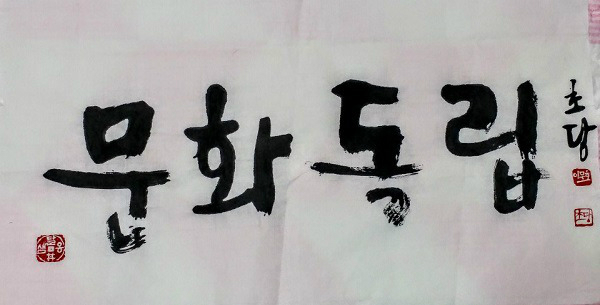 문화독립
초당